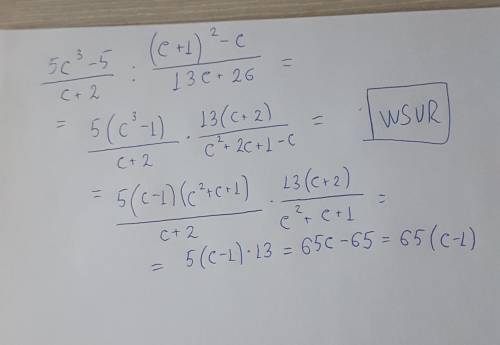 (5c³-5)/(c+2) : ((c+1)²-c)/(13c+26) =
= 5(c³-1)/(c+2) · 13(c+2)/(c²+2c+1-c) =
WSUR
= 5(c-1)(c²+c+1)/(c+2) · 13(c+2)/(c²+c+1) =
= 5(c-1)·13 = 65c-65 = 65(c-1)